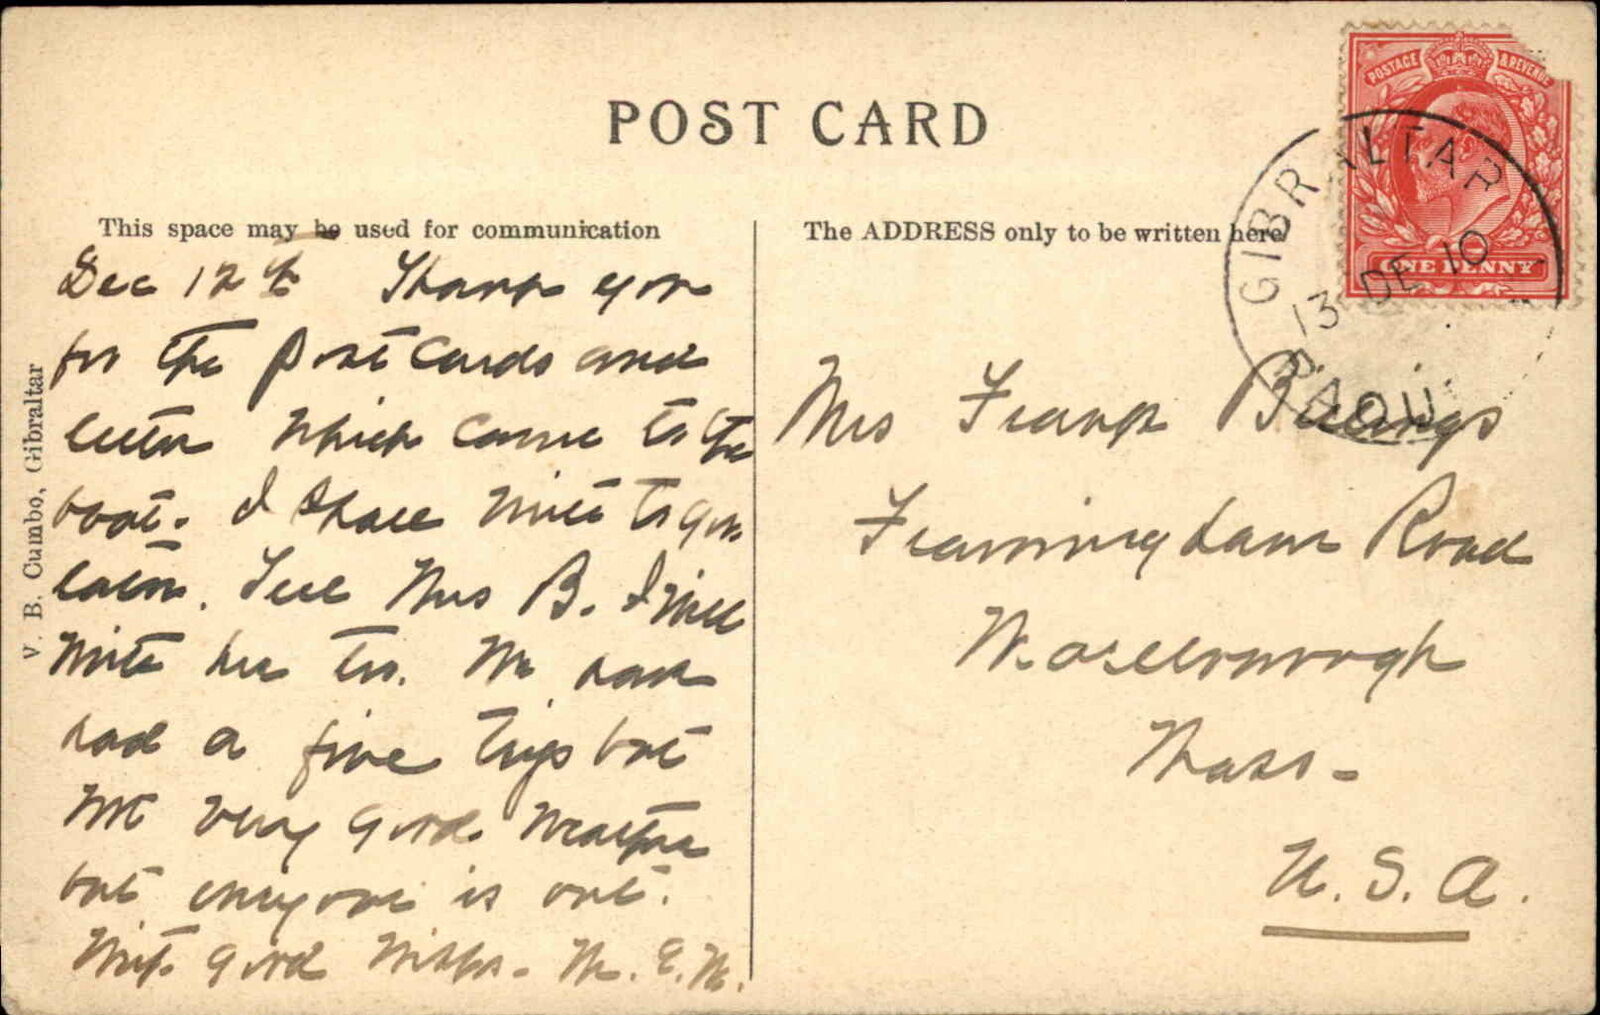 POST CARD
This space may be used for communication
The ADDRESS only to be written here
POSTAGE & REVENUE
ONE PENNY
GIBRALTAR
13 DE 10
PAQU
V. B. Cumbo, Gibraltar
Dec 12th Thank you
for the post cards and
letter which came to the
boat. I shall write to you
later. Tell Mrs B. I will
write her too. We have
had a fine trip but
not very good weather
but everyone is out.
With good wishes - M. E. W.
Mrs Frank Billings
Framingham Road
Marlborough
Mass-
U. S. A.